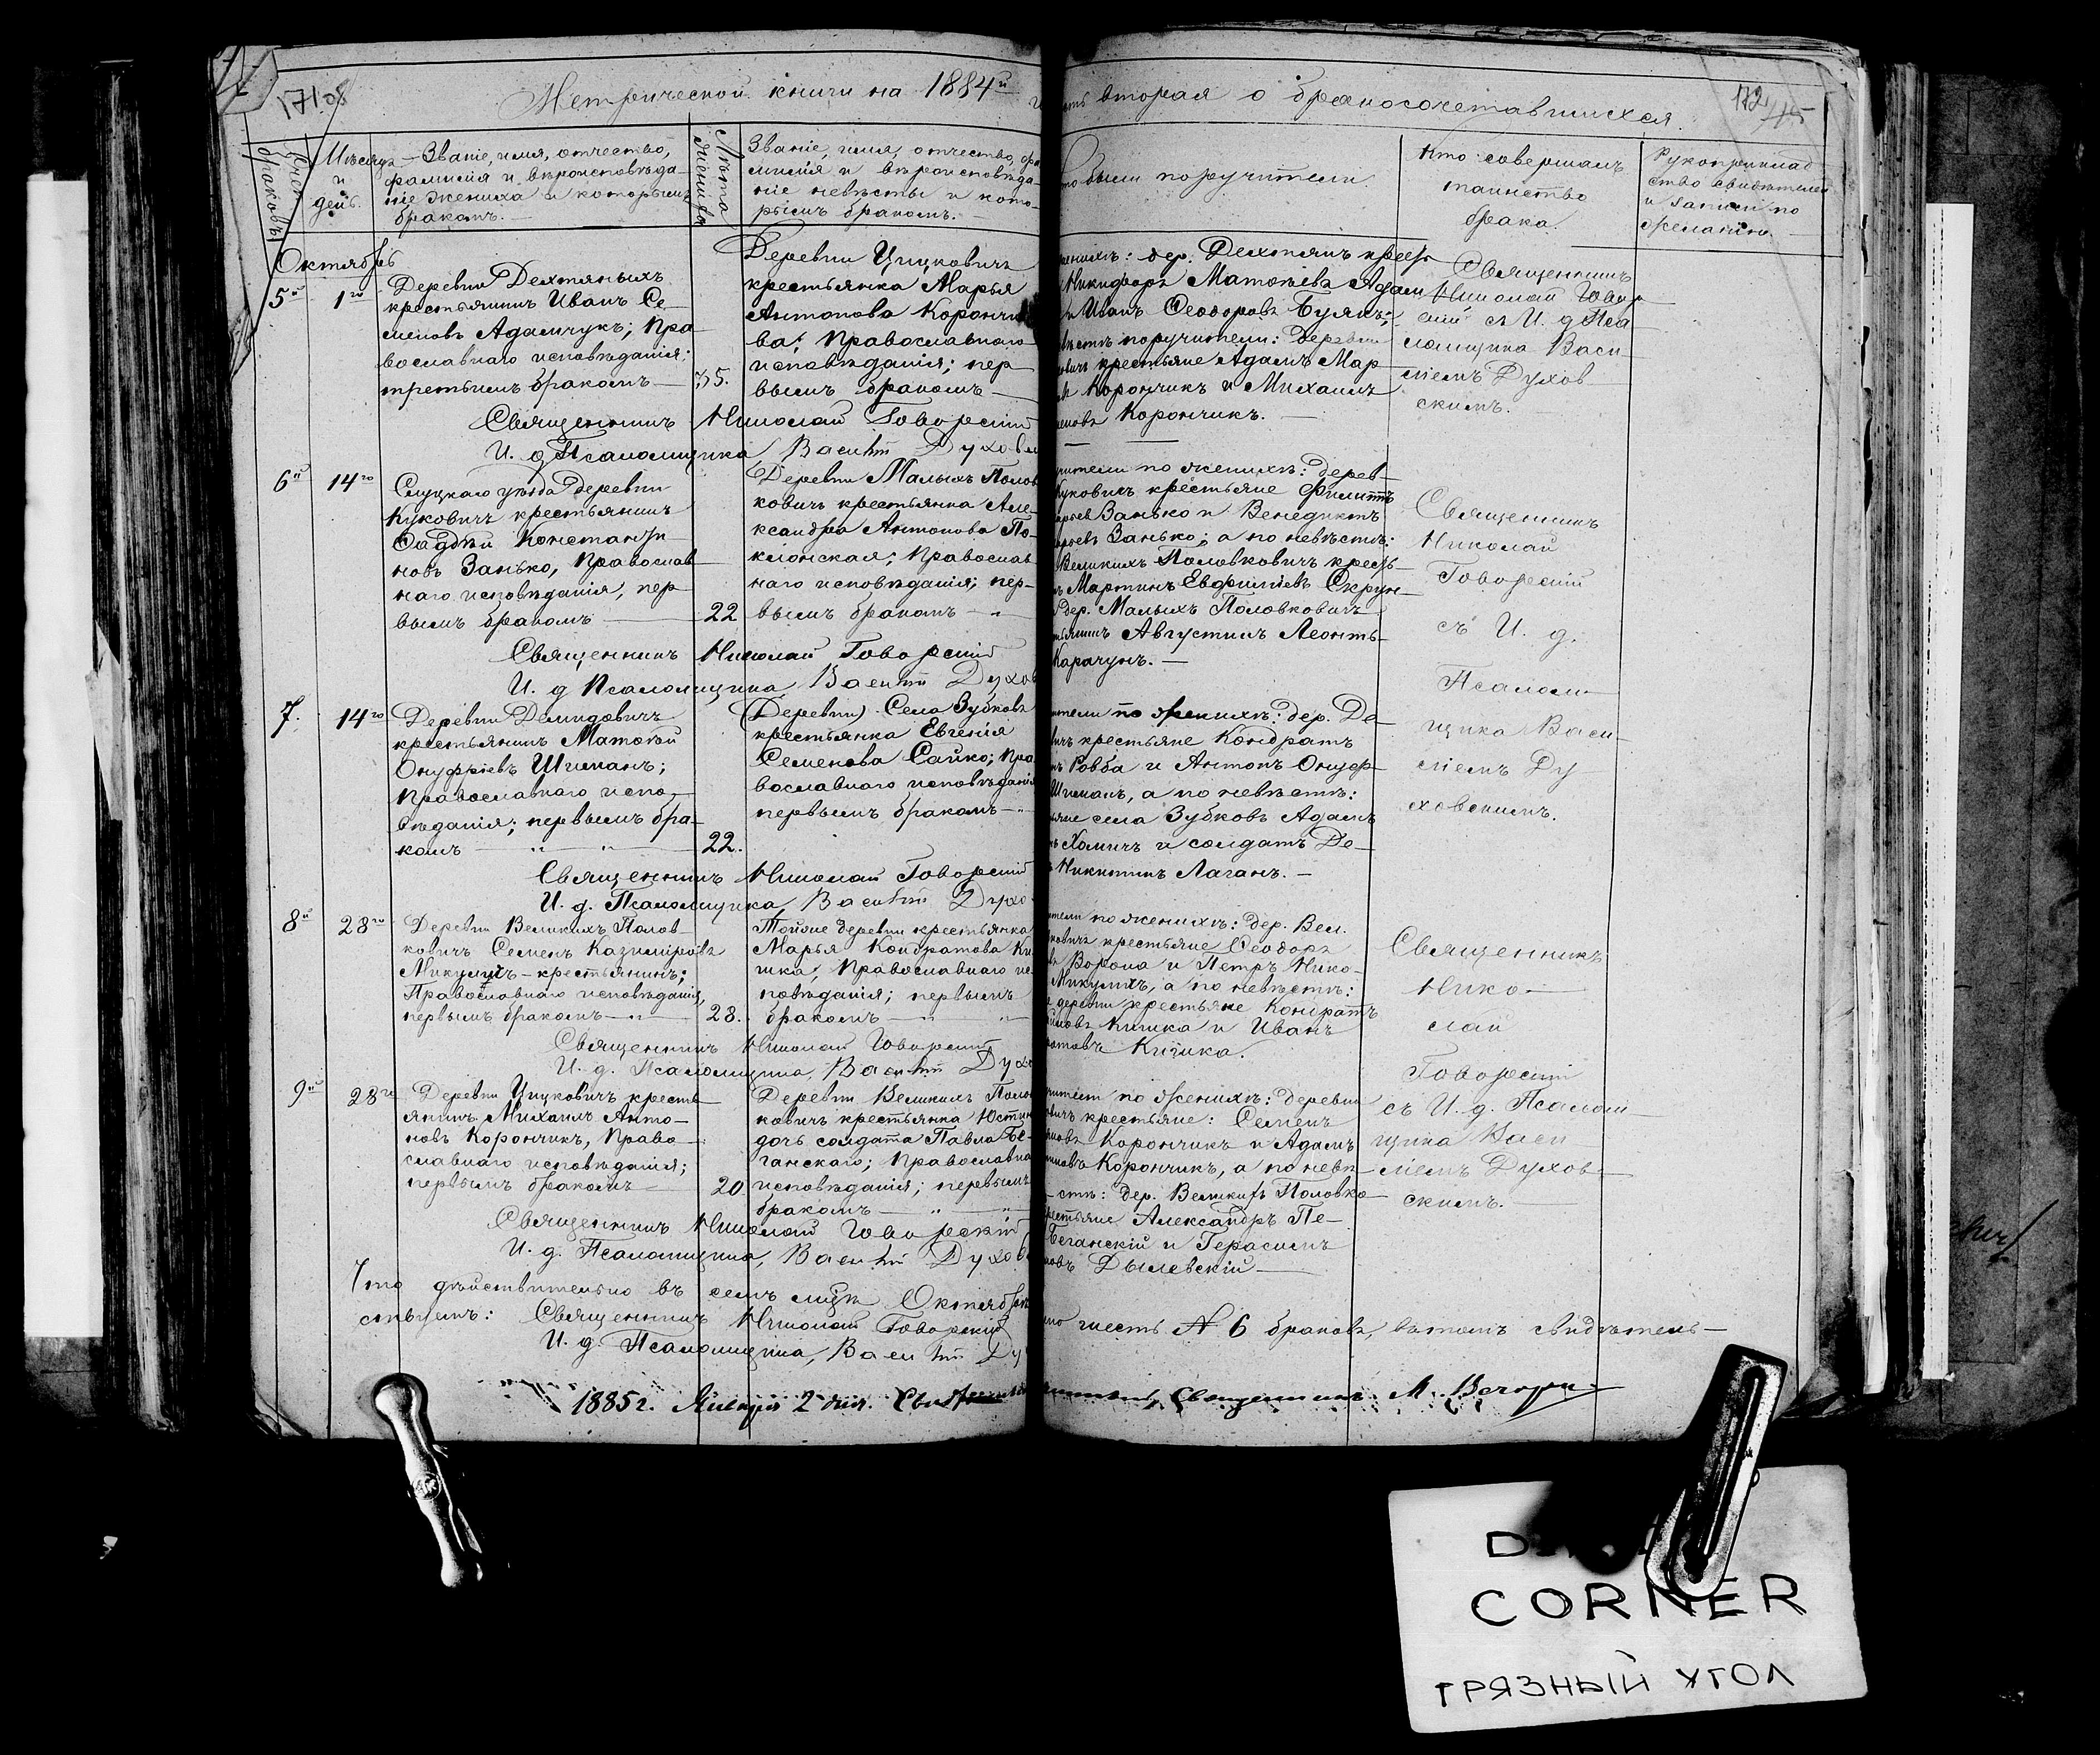 Метрической книги на 1884й
часть вторая о бракосочетавшихся.
172
Счетъ браковъ.
Мѣсяцъ и день.
Званіе, имя, отчество,
фамилія и вѣроисповѣда-
ніе жениха и которымъ
бракомъ.
Лѣта жениха
Званіе, имя, отчество, фа-
милія и вѣроисповѣда-
ніе невѣсты и кото-
рымъ бракомъ.
Кто были поручители.
Кто совершалъ
таинство
брака.
Рукоприклад-
ство свидѣтелей
и записи по
желанію.
Октябрь
5й
1го
Деревни Дехтяныхъ
крестьянинъ Иванъ Се-
меновъ Адамчукъ; Пра-
вославнаго исповѣданія;
третьимъ бракомъ
35.
Деревни Цицковичъ
крестьянка Марья
Антонова Корончи
ва; Православнаго
исповѣданія; пер-
вымъ бракомъ
женихѣ: дер. Дехтянъ крест
Никифоръ Матѳѣевъ Адам
и Иванъ Ѳеодоровъ Булкъ;
невѣстѣ поручители: деревни
крестьяне Адамъ Мар
Корончикъ и Михаилъ
Корончикъ.
Священникъ
Николай Говор
скій съ И. д. Пса-
ломщика Васи-
ліемъ Духов
скимъ.
Священникъ Николай Говорскій
И. д. Псаломщика Василій Духовс
6й
14го
Слуцкаго уѣзда деревни
Куковичъ крестьянинъ
Ѳаддѣй Константи
новъ Занько, Православ-
наго исповѣданія, пер-
вымъ бракомъ
22
Деревни Малыхъ Полов
ковичъ крестьянка Але-
ксандра Антонова По-
клонская; Православ-
наго исповѣданія; пер-
вымъ бракомъ
поручители по женихѣ: дерев-
Куковичъ крестьяне Филиппъ
Занько и Венедиктъ
Занько; а по невѣстѣ:
Великихъ Половковичъ кресть-
Мартинъ Евфиміевъ Скрун-
дер. Малыхъ Половковичъ
Августинъ Леонть-
Карачунъ.
Священникъ
Николай
Говорскій
съ И. д.
Псалом-
щика Васи-
ліемъ Ду-
ховскимъ.
Священникъ Николай Говорскій
И. д. Псаломщика Василій Духов
7.
14го
Деревни Демидовичъ
крестьянинъ Матѳей
Онуфріевъ Шиманъ;
Православнаго испо-
вѣданія; первымъ бра-
комъ
22.
(Деревни) Села Зубковъ
крестьянка Евгенія
Семенова Сайко; Пра
вославнаго исповѣданія
первымъ бракомъ
поручители по женихѣ: дер. Де-
крестьяне Кондратъ
Ровба и Антонъ Онуфр-
Шиманъ, а по невѣстѣ:
села Зубковъ Адамъ
Хомичъ и солдатъ Де-
Никитинъ Лаганъ.
Священникъ Николай Говорскій
И. д. Псаломщика Василій Духо
8й
28го
Деревни Великихъ Полов-
ковичъ Семенъ Казиміровъ
Микуличъ - крестьянинъ;
Православнаго исповѣданія,
первымъ бракомъ
23.
Тойже деревни крестьянка
Марья Кондратова Ки
шка; Православнаго ис-
повѣданія; первымъ
бракомъ
поручители по женихѣ: дер. Вел.
крестьяне Ѳеодоръ
Ворона и Петръ Нико-
Микуличъ, а по невѣстѣ:
деревни крестьяне Кондратъ
Кишка и Иванъ
Кишка.
Священникъ
Нико-
лай
Говорскій
съ И. д. Псалом-
щика Васи-
ліемъ Духов-
скимъ.
Священникъ Николай Говорскій
И. д. Псаломщика, Василій Духо
9й
28го
Деревни Цицковичъ кресть-
янинъ Михаилъ Анто-
новъ Корончикъ, Право-
славнаго исповѣданія;
первымъ бракомъ
20.
Деревни Великихъ Полов
ковичъ крестьянка Юстин
дочь солдата Павла Бе-
ганскаго; Православна
исповѣданія; первымъ
бракомъ
поручители по женихѣ: деревни
крестьяне: Семенъ
Корончикъ и Адамъ
Корончикъ, а по невѣ-
стѣ: дер. Великихъ Половко-
крестьяне Александръ Пе-
Беганскій и Герасимъ
Дылевскій
Священникъ Николай Говорскій
И. д. Псаломщика, Василій Духовс
Что дѣйствительно въ семъ мцѣ Октябрѣ
шесть № 6 браковъ, въ томъ свидѣтель-
ствуемъ: Священникъ Николай Говорскій
И. д. Псаломщика, Василій Ду
1885 г. Января 2 дня.
Священникъ М.
CORNER
ГРЯЗНЫЙ УГОЛ